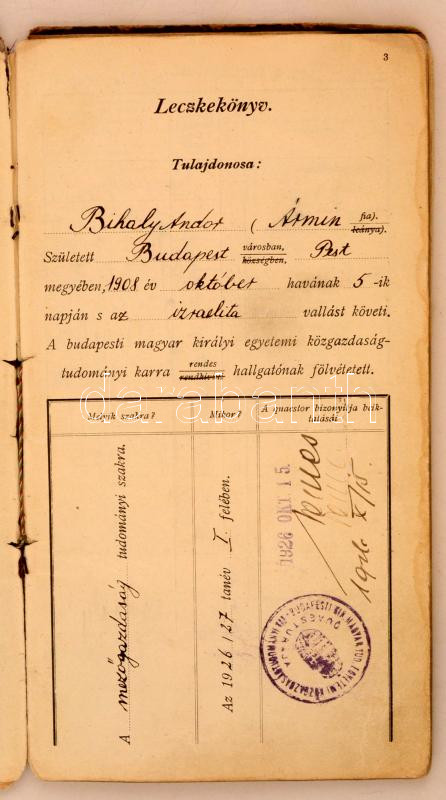 3
Leczkekönyv.
Tulajdonosa:
Bihaly Andor ( Ármin fia). leánya).
Született Budapest városban, községben, Pest
megyében, 1908 év október havának 5-ik
napján s az izraelita vallást követi.
A budapesti magyar királyi egyetemi közgazdaság-
tudományi karra rendes rendkívüli hallgatónak fölvétetett.
Melyik szakra?
Mikor?
A quaestor bizonyítja beik-
tatását
A mezőgazdaság tudományi szakra.
Az 1926/27 tanév I. felében.
1926 OKT 15.
1926 X/15.
QUAESTURA
darabanth